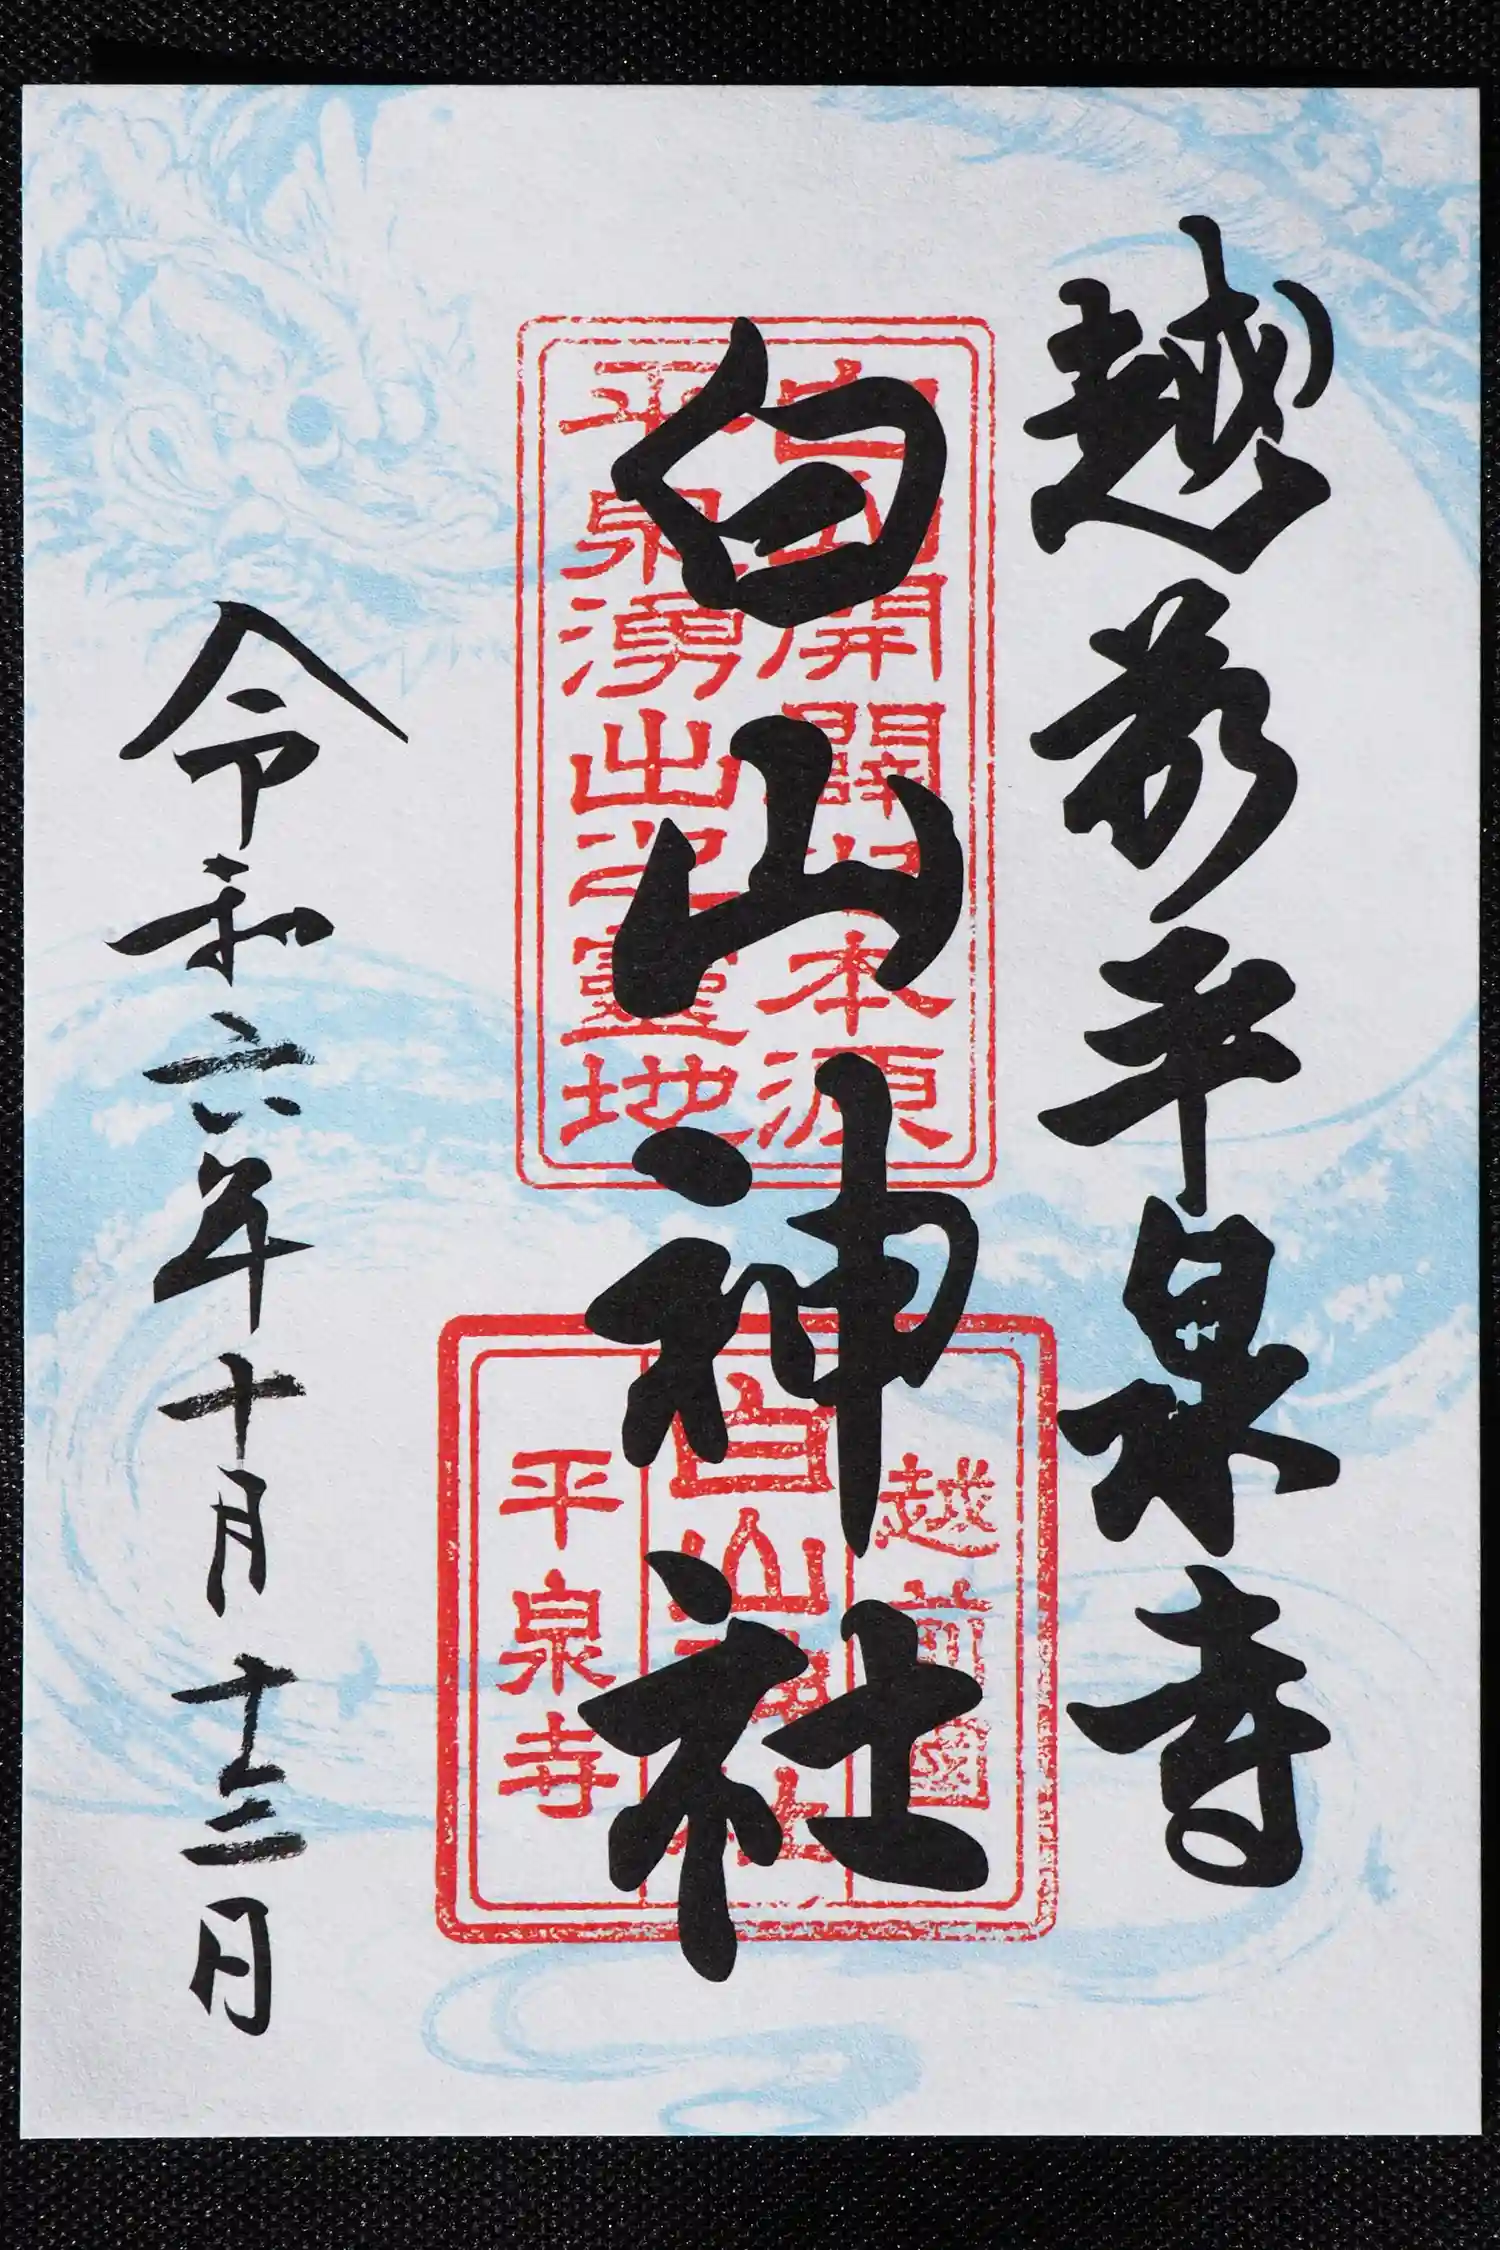 越前平泉寺
白山神社
令和六年十月十三日
白山開闢之本源
平泉湧出之靈地
越前國
白山神社
平泉寺